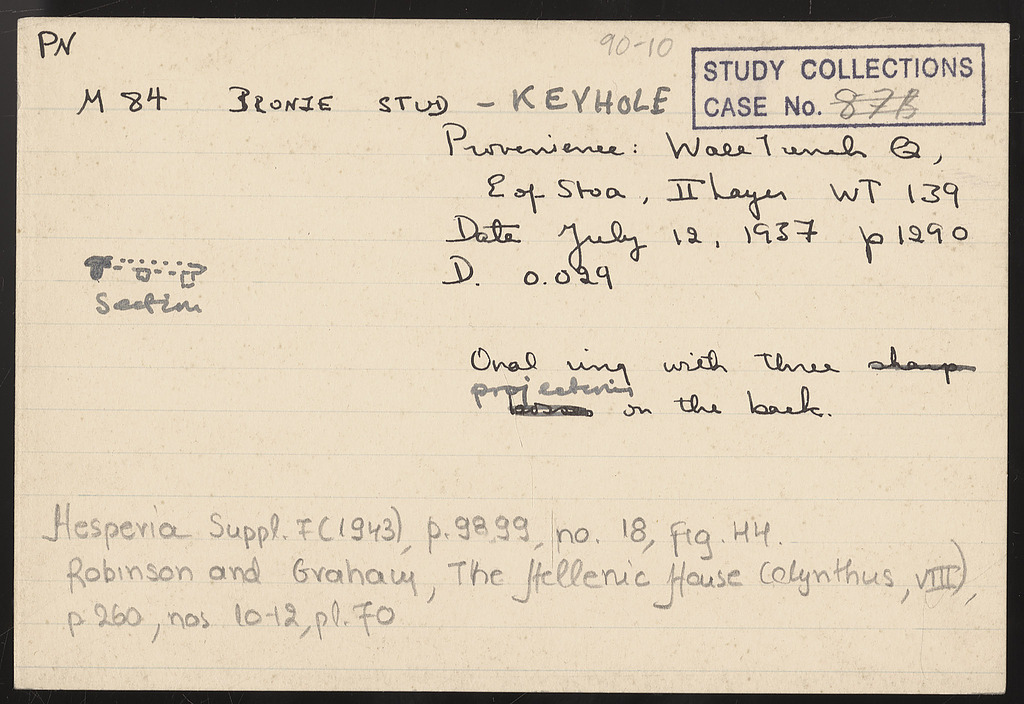 PN
90-10
STUDY COLLECTIONS
CASE No. 87B
M 84 BRONZE STUD - KEYHOLE
Provenience: Wall Trench Q,
E of Stoa, II Layer WT 139
Date July 12, 1937 p 1290
D. 0.029
Section
Oval ring with three sharp
projections
bosses on the back.
Hesperia Suppl. 7 (1943), p. 98.99, no. 18, Fig. 44.
Robinson and Graham, The Hellenic House (Olynthus, VIII),
p 260, nos 10-12, pl. 70